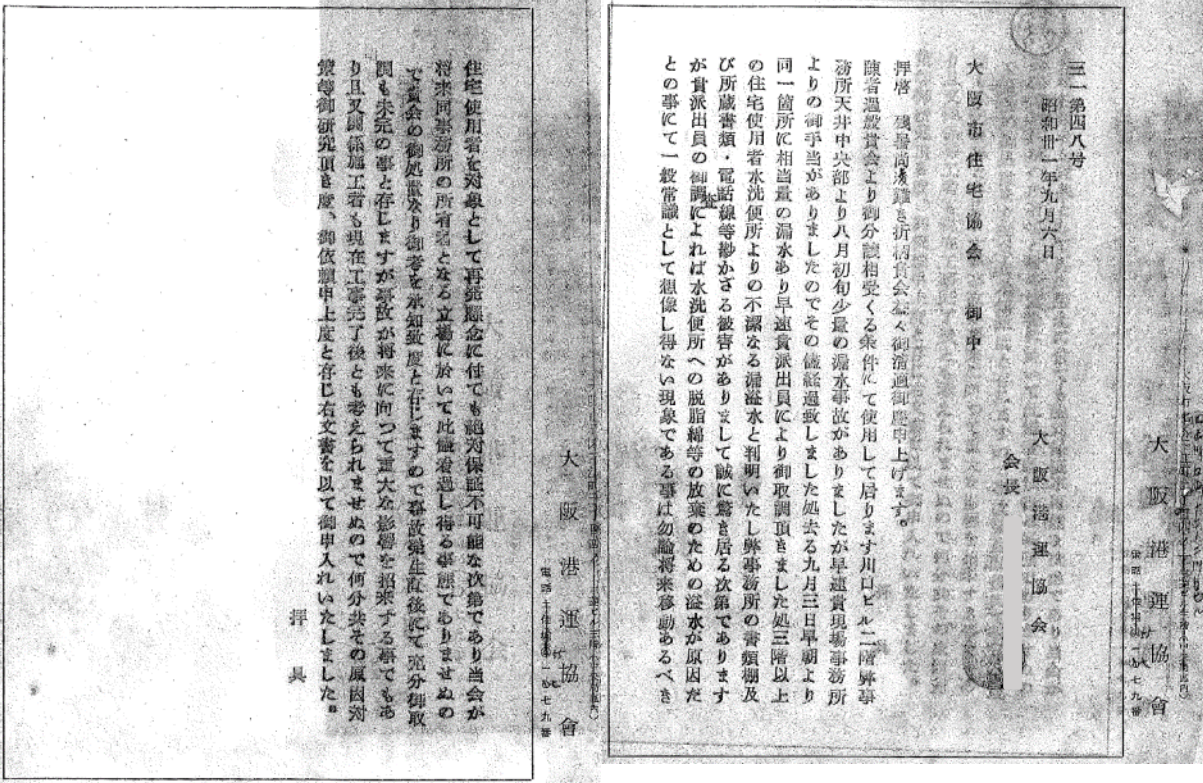 三一第四八号
昭和卅一年九月六日
大阪港運協会
会長
大阪市住宅協会 御中
拝啓 残暑尚凌難き折柄貴会益々御清適御慶申上げます。
陳者過般貴会より御分譲相受くる条件にて使用して居ります川口ビル二階弊事
務所天井中央部より八月初旬少量の漏水事故がありましたが早速貴現場事務所
よりの御手当がありましたのでその儘経過致しました処去る九月三日早朝より
同一箇所に相当量の漏水あり早速貴派出員により御取調頂きました処三階以上
の住宅使用者水洗便所よりの不潔なる漏溢水と判明いたし弊事務所の書類棚及
び所蔵書類・電話線等尠かざる被害がありまして誠に驚き居る次第であります
が貴派出員の御調査によれば水洗便所への脱脂綿等の放棄のための溢水が原因だ
との事にて一般常識として想像し得ない現象である事は勿論将来移動あるべき
大阪港運協會
住宅使用者を対象として再発懸念に付ても絶対保証不可能な次第であり当会が
将来同事務所の所有者となる立場に於いて此儘看過し得る事態でありませぬの
で貴会の御処置なり御考を承知致度と存じますので事故発生直後にて充分御取
調も未完の事と存じますが事故が将来に向つて重大な影響を招来する事でもあ
り且又関係施工者も現在工事完了後とも考えられませぬので何分共その原因対
策等御研究頂き度、御依頼申上度と存じ右文書を以て御申入れいたしました。
拝具
大阪港運協會